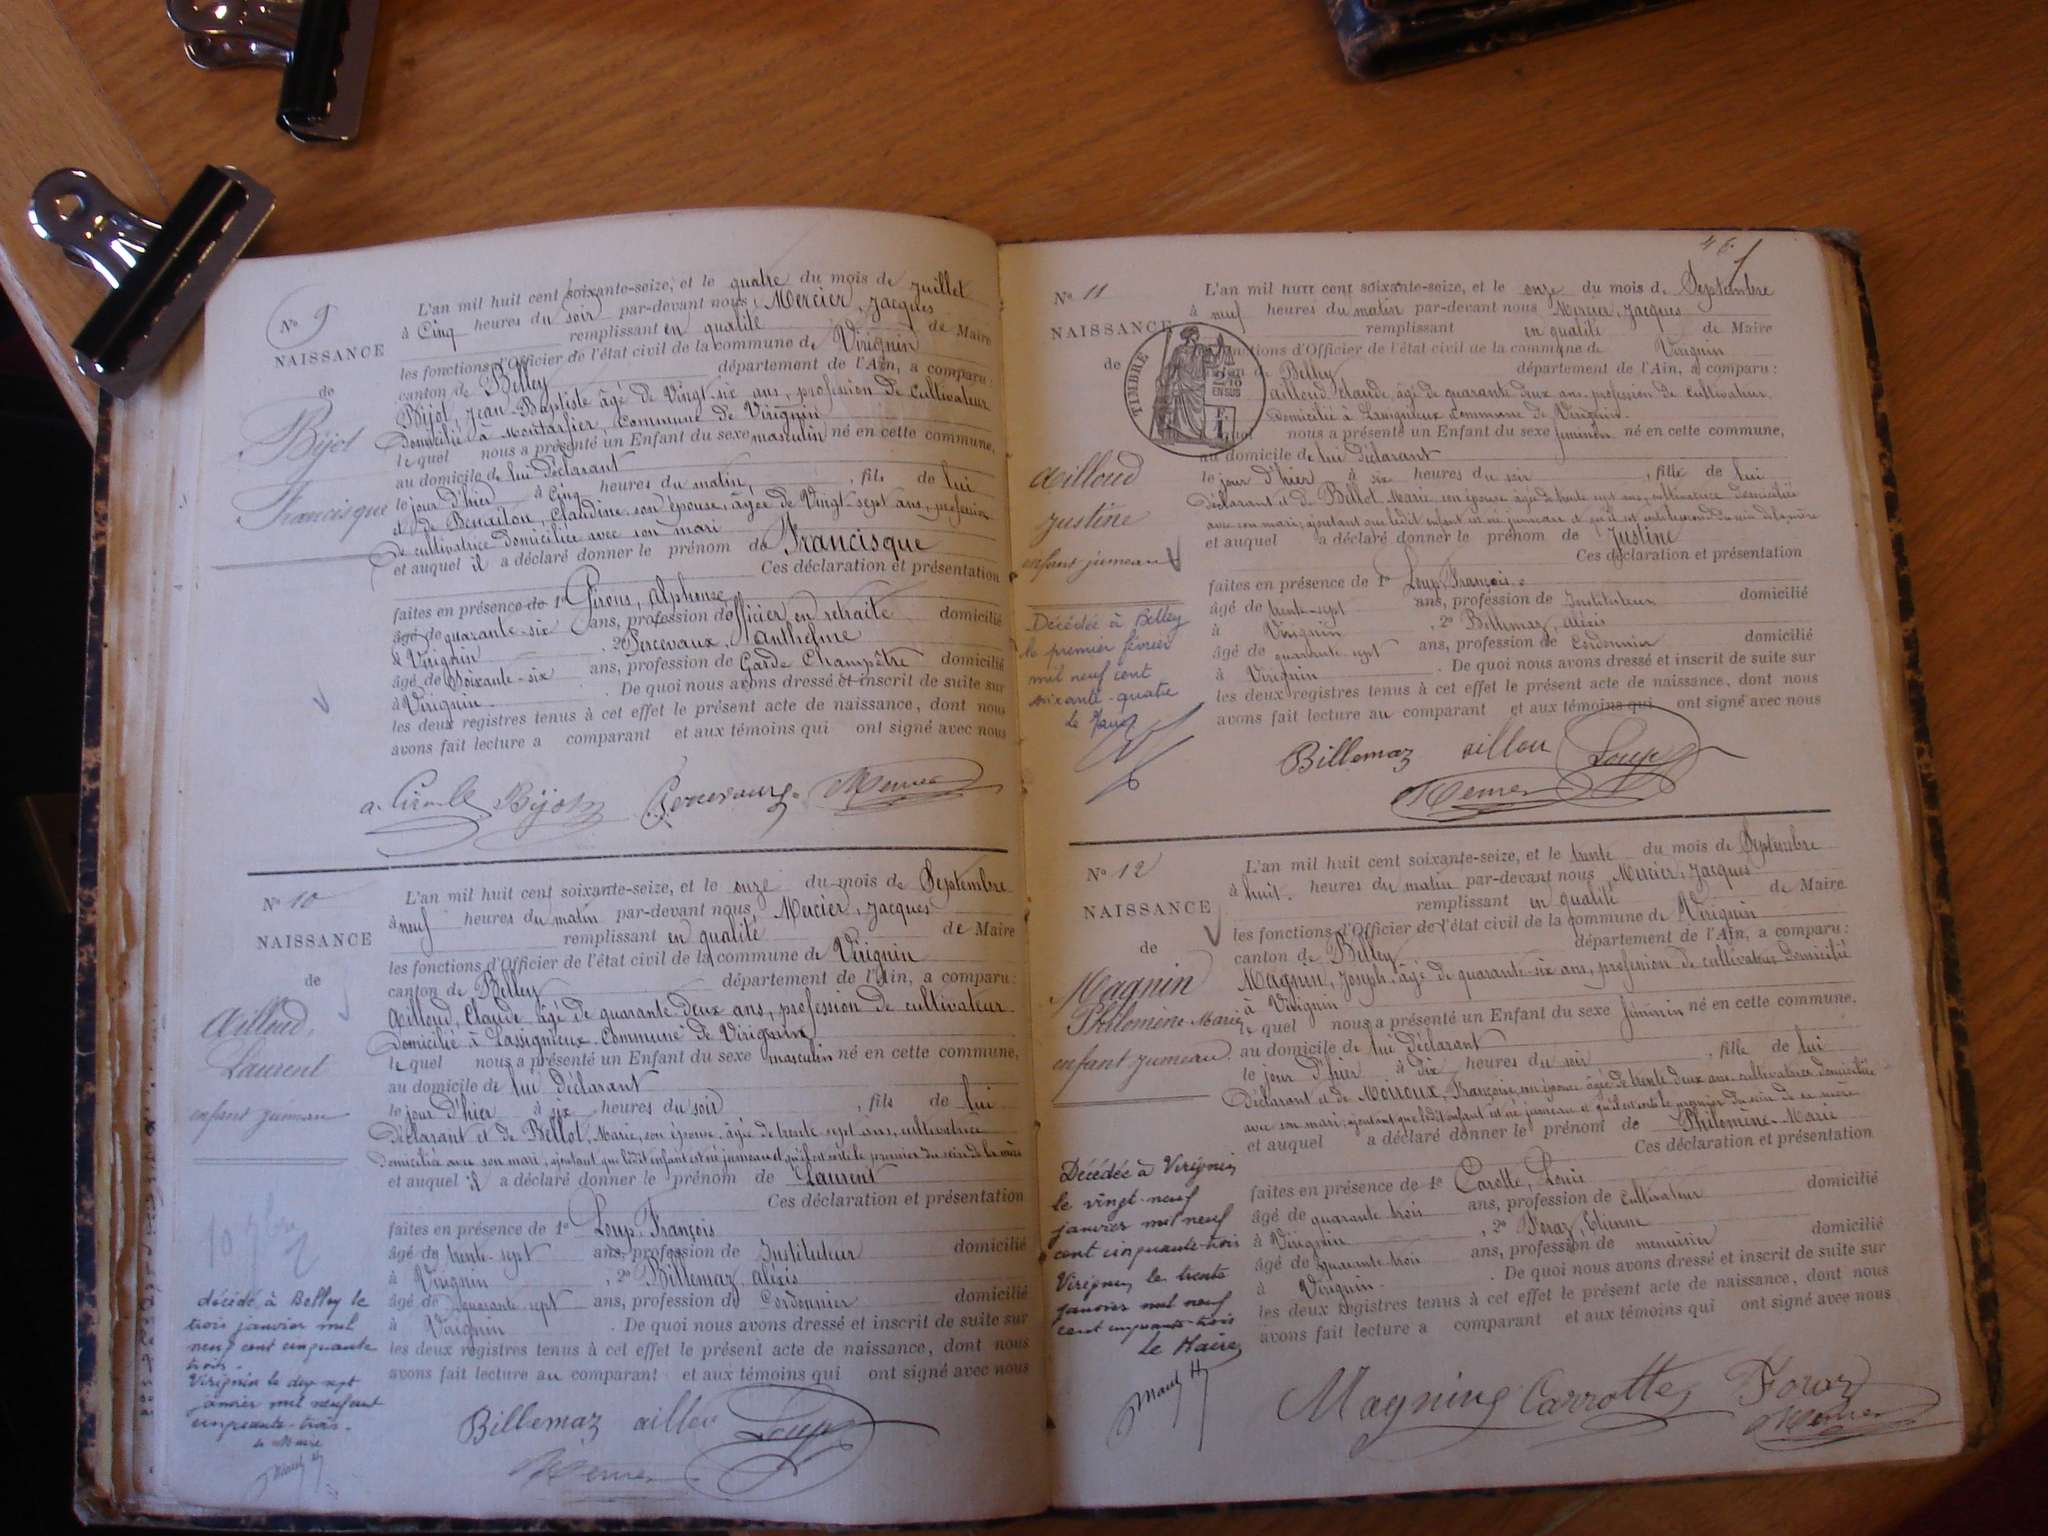 N° 9
NAISSANCE
de
Bijot
Francisque
L'an mil huit cent soixante-seize, et le quatre du mois de Juillet
à Cinq heures du soir par-devant nous, Mercier, Jacques
remplissant en qualité de Maire
les fonctions d'Officier de l'état civil de la commune de Virignin
canton de Belley département de l'Ain, a comparu:
Bijot, Jean-Baptiste âgé de Vingt-six ans, profession de Cultivateur
Domicilié à Montarfier, Commune de Virignin
le quel nous a présenté un Enfant du sexe masculin né en cette commune,
au domicile de lui Déclarant
le jour d'hier à Cinq heures du matin, fils de lui
et de Claudine son épouse, âgée de Vingt-sept ans, profession
de cultivatrice domiciliée avec son mari
et auquel il a déclaré donner le prénom de Francisque
Ces déclaration et présentation
faites en présence de 1° Alphonse
âgé de quarante-six ans, profession d'officier en retraite domicilié
à Virignin, 2° Percevaux, Anthelme
âgé de Soixante-six ans, profession de Garde Champêtre domicilié
à Virignin. De quoi nous avons dressé et inscrit de suite sur
les deux registres tenus à cet effet le présent acte de naissance, dont nous
avons fait lecture a comparant et aux témoins qui ont signé avec nous
Bijot Percevaux Mercier
N° 10
NAISSANCE
de
Ailloud,
Laurent
enfant jumeau
décédé à Belley le
trois janvier mil
neuf cent cinquante
trois.
Virignin le dix sept
janvier mil neuf cent
cinquante-trois.
Le Maire
L'an mil huit cent soixante-seize, et le onze du mois de Septembre
à neuf heures du matin par-devant nous, Mercier, Jacques
remplissant en qualité de Maire
les fonctions d'Officier de l'état civil de la commune de Virignin
canton de Belley département de l'Ain, a comparu:
Ailloud, Claude, âgé de quarante deux ans, profession de cultivateur
Domicilié à Lassignieux Commune de Virignin
le quel nous a présenté un Enfant du sexe masculin né en cette commune,
au domicile de lui Déclarant
le jour d'hier à six heures du soir, fils de lui
Déclarant et de Bellot, Marie, son épouse, âgée de trente sept ans, cultivatrice
domiciliée avec son mari, ajoutant que ledit enfant est né jumeau et qu'il est sorti le premier du sein de la mère
et auquel il a déclaré donner le prénom de Laurent
Ces déclaration et présentation
faites en présence de 1° Loup, François
âgé de trente-sept ans, profession de Instituteur domicilié
à Virignin, 2° Billemaz, Alexis
âgé de quarante sept ans, profession de Cordonnier domicilié
à Virignin. De quoi nous avons dressé et inscrit de suite sur
les deux registres tenus à cet effet le présent acte de naissance, dont nous
avons fait lecture au comparant et aux témoins qui ont signé avec nous
Billemaz aillou Loup
Mercier
46
N° 11
NAISSANCE
de
TIMBRE
2/10
EN SUS
Ailloud
Justine
enfant jumeau
Décédée à Belley
le premier février
mil neuf cent
soixante-quatre
Le Maire
L'an mil huit cent soixante-seize, et le onze du mois de Septembre
à neuf heures du matin par-devant nous Mercier, Jacques
remplissant en qualité de Maire
fonctions d'Officier de l'état civil de la commune de Virignin
de Belley département de l'Ain, a comparu:
Ailloud, Claude, âgé de quarante deux ans, profession de Cultivateur,
Domicilié à Lassignieux, Commune de Virignin.
nous a présenté un Enfant du sexe féminin né en cette commune,
au domicile de lui Déclarant
le jour d'hier à six heures du soir, fille de lui
Déclarant et de Bellot, Marie, son épouse âgée de trente sept ans, cultivatrice domiciliée
avec son mari, ajoutant que ledit enfant est né jumeau et qu'il est sorti le second du sein de la mère
et auquel a déclaré donner le prénom de Justine
Ces déclaration et présentation
faites en présence de 1° Loup, François.
âgé de trente-sept ans, profession de Instituteur domicilié
à Virignin, 2° Billemaz, Alexis
âgé de quarante sept ans, profession de Cordonnier domicilié
à Virignin. De quoi nous avons dressé et inscrit de suite sur
les deux registres tenus à cet effet le présent acte de naissance, dont nous
avons fait lecture au comparant et aux témoins qui ont signé avec nous
Billemaz aillou Loup
Mercier
N° 12
NAISSANCE
de
Magnin
Philomène-Marie
enfant jumeau
Décédée à Virignin
le vingt-neuf
janvier mil neuf
cent cinquante-trois
Virignin, le trente
janvier mil neuf
cent cinquante-trois
Le Maire,
L'an mil huit cent soixante-seize, et le trente du mois de Septembre
à huit heures du matin par-devant nous, Mercier, Jacques
remplissant en qualité de Maire
les fonctions d'Officier de l'état civil de la commune de Virignin
canton de Belley département de l'Ain, a comparu:
Magnin, Joseph, âgé de quarante-six ans, profession de cultivateur domicilié
à Virignin
le quel nous a présenté un Enfant du sexe féminin né en cette commune,
au domicile de lui Déclarant
le jour d'hier à dix heures du soir, fille de lui
Déclarant et de Moiroux, Françoise, son épouse âgée de trente deux ans cultivatrice domiciliée
avec son mari; ajoutant que ledit enfant est né jumeau et qu'il est sorti le premier du sein de sa mère
et auquel a déclaré donner le prénom de Philomène-Marie
Ces déclaration et présentation
faites en présence de 1° Carotte, Louis
âgé de quarante trois ans, profession de Cultivateur domicilié
à Virignin, 2° Feraz, Etienne
âgé de quarante trois ans, profession de menuisier domicilié
à Virignin. De quoi nous avons dressé et inscrit de suite sur
les deux registres tenus à cet effet le présent acte de naissance, dont nous
avons fait lecture a comparant et aux témoins qui ont signé avec nous
Magnin Carrotte Feraz
Mercier